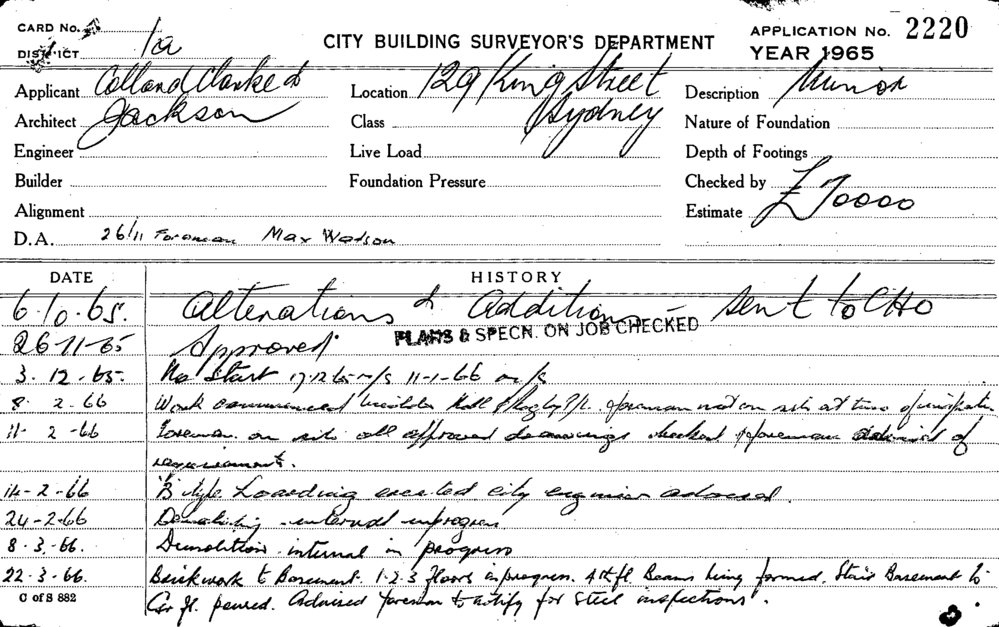 CARD No.
DISTRICT 1a
CITY BUILDING SURVEYOR'S DEPARTMENT
APPLICATION No. 2220
YEAR 1965
Applicant Colland Clarke &
Architect Jackson
Engineer
Builder
Alignment
D.A. 26/11 Foreman Max Watson
Location 129 King Street
Class Sydney
Live Load
Foundation Pressure
Description Minor
Nature of Foundation
Depth of Footings
Checked by
Estimate £70000
DATE HISTORY
6.10.65. Alterations & Additions sent to CHO
PLANS & SPECN. ON JOB CHECKED
26-11-65 Approved.
3.12.65. No Start 17.12.65 n/s 11-1-66 n/s
8. 2.66 Work commenced builder foreman not on site at time of inspection
11. 2-66 Foreman on site all approved drawings checked & foreman advised of
requirements.
14-2-66 'B' type hoarding erected city engineer advised.
24-2-66 Demolishing internal in progress
8.3.66. Demolition internal in progress
22.3.66. Brickwork to Basement. 1.2.3 floors in progress. 4th fl. Beams being formed. Stairs Basement to
Gr fl. poured. Advised foreman to notify for steel inspections.
C of S 882